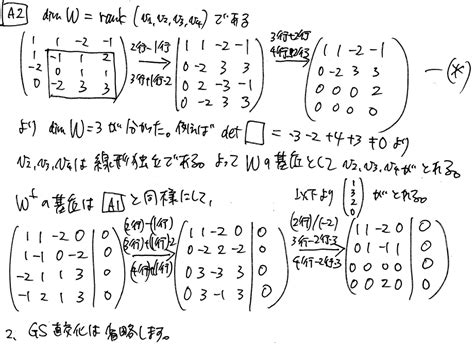 A2 dim W = rank (v₁, v₂, v₃, v₄) である
( 1 1 -2 -1 / 1 -1 1 2 / -2 0 1 1 / 0 -2 3 3 ) 2行-1行 3行+1行·2 → ( 1 1 -2 -1 / 0 -2 3 3 / 0 2 -3 -1 / 0 -2 3 3 ) 3行+2行 → ( 1 1 -2 -1 / 0 -2 3 3 / 0 0 0 2 / 0 0 0 0 ) — (*)
より dim W = 3 が分かった。例えば det □ = -3-2+4+3 ≠ 0 より
v₂, v₃, v₄ は線形独立である。よって W の基底として v₂, v₃, v₄ がとれる。
の基底は A1 と同様にして、 以下より ( 1 / 3 / 2 / 0 ) がとれる。
( 1 1 -2 0 | 0 / 1 -1 0 -2 | 0 / -2 1 1 3 | 0 / -1 2 1 3 | 0 ) (2行)-(1行) (3行)+(1行)·2 (4行)+(1行) → ( 1 1 -2 0 | 0 / 0 -2 2 -2 | 0 / 0 3 -3 3 | 0 / 0 3 -1 3 | 0 ) (2行)/(-2) 3行-2行·3 4行-2行·3 → ( 1 1 -2 0 | 0 / 0 1 -1 1 | 0 / 0 0 0 0 | 0 / 0 0 2 0 | 0 )
2、GS直交化は省略します。